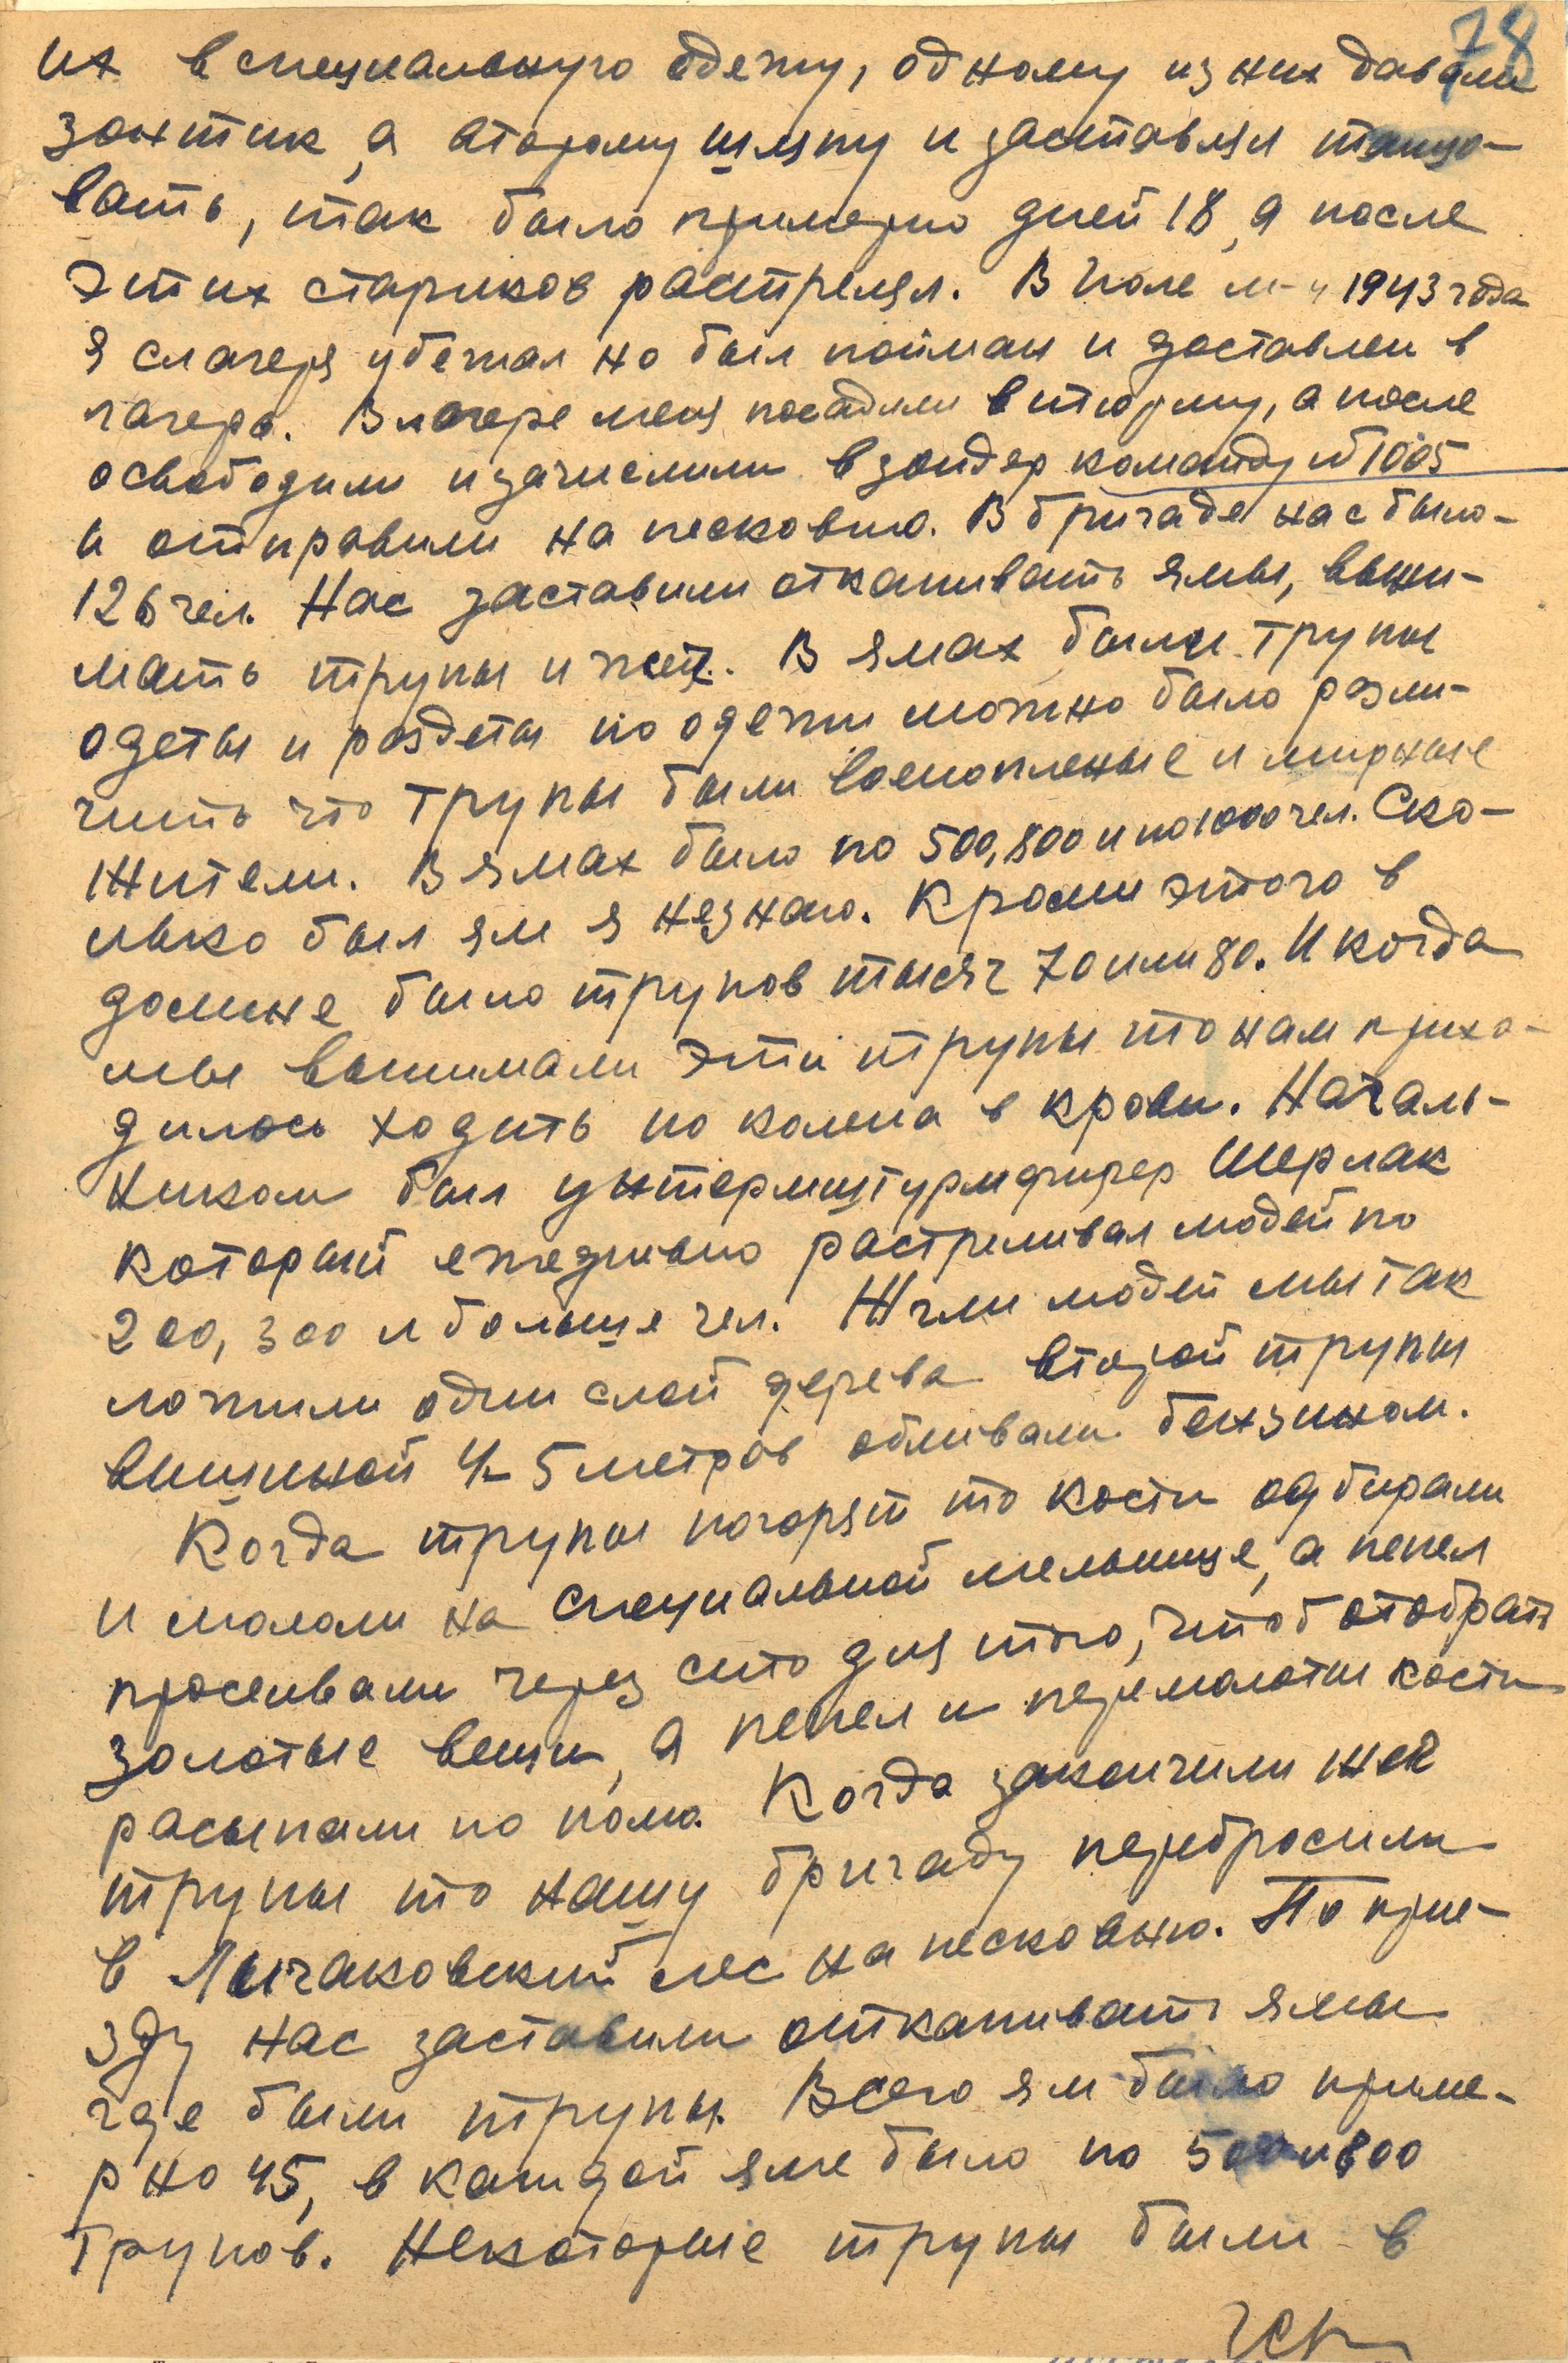 78
их в специальную одежу, одному из них давали
зонтик, а второму шляпу и заставлял танцо-
вать, так было примерно дней 18, а после
этих стариков растрелял. В июле м-ц 1943 года
я слагеря убежал но был пойман и доставлен в
лагерь. В лагере меня посадили в тюрьму, а после
освободили и зачислили в зондер команду №1005
и отправили на песковню. В бригаде нас было-
126 чел. Нас заставили откапивать ямы, выни-
мать трупы и жеч. В ямах были трупы
одеты и раздеты по одежи можно было разли-
чить что трупы были военопленые и мирные
жители. В ямах было по 500, 800 и по 1000 чел. Ско-
лько был ям я незнаю. Кроми этого в
долине было трупов тысяч 70 или 80. И когда
мы вынимали эти трупы то нам прихо-
дилось ходить по колена в крови. Началь-
ником был унтерштурмфирер Шерлак
который ежедневно растреливал людей по
200, 300 и больше чел. Жгли людей мы так
ложили один слой дерева второй трупы
вышиной 4-5 метров обливали бензином.
Когда трупы погорят то кости одбирали
и мололи на специальной мельнице, а пепел
просеивали через сито для того, чтоб отобрать
золотые вещи, а пепел и перемолотые кости
расыпали по полю. Когда закончили жеч
трупы то нашу бригаду перебросили
в Лычаковский лес на песковню. По прие-
зду нас заставили откапивать ямы
где были трупы. Всего ям было приме-
рно 45, в каждой яме было по 500 и 800
трупов. Некоторые трупы были в